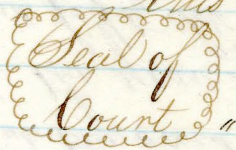 Seal of
Court "